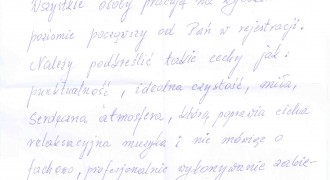 Wszystkie osoby pracują na wysokim
poziomie począwszy od Pań w rejestracji.
Należy podkreślić takie cechy jak:
punktualność, idealna czystość, miła,
serdeczna atmosfera, którą poprawia cicha
relaksacyjna muzyka i nie mówiąc o
fachowo, profesjonalnie wykonywanie zabie-